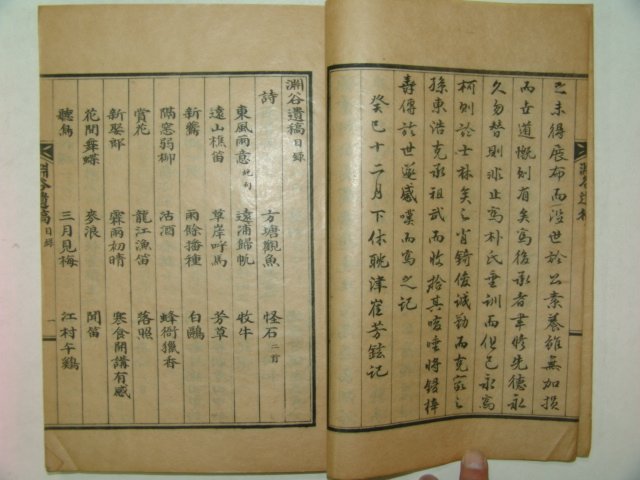 之未得展布而沒世於公素養雖無加損
而在世道慨則有矣為後承者聿修先德永
久勿替則非止為朴氏垂訓而但已永為
柯則於士林矣之肖錡俊誠勤而克家之
孫東浩克承祖武而收拾其咳唾將鋟梓
壽傳於世遂感嘆而為之記
癸巳十二月下休耽津崔芳鉉記
淵谷遺稿目錄
詩
方塘觀魚 怪石二首
東風雨意 遠浦歸帆 收牛
遠山樵笛 草岸呼馬 芳草
新鶯 雨餘播種 白鷗
隔窓弱柳 沽酒 蜂衙獵香
賞花 龍江漁笛 落照
新娶郎 霖雨初晴 寒食開講有感
花間舞蝶 麥浪 聞笛
聽鳥 三月見梅 江村午鷄
淵谷遺稿 目錄 一